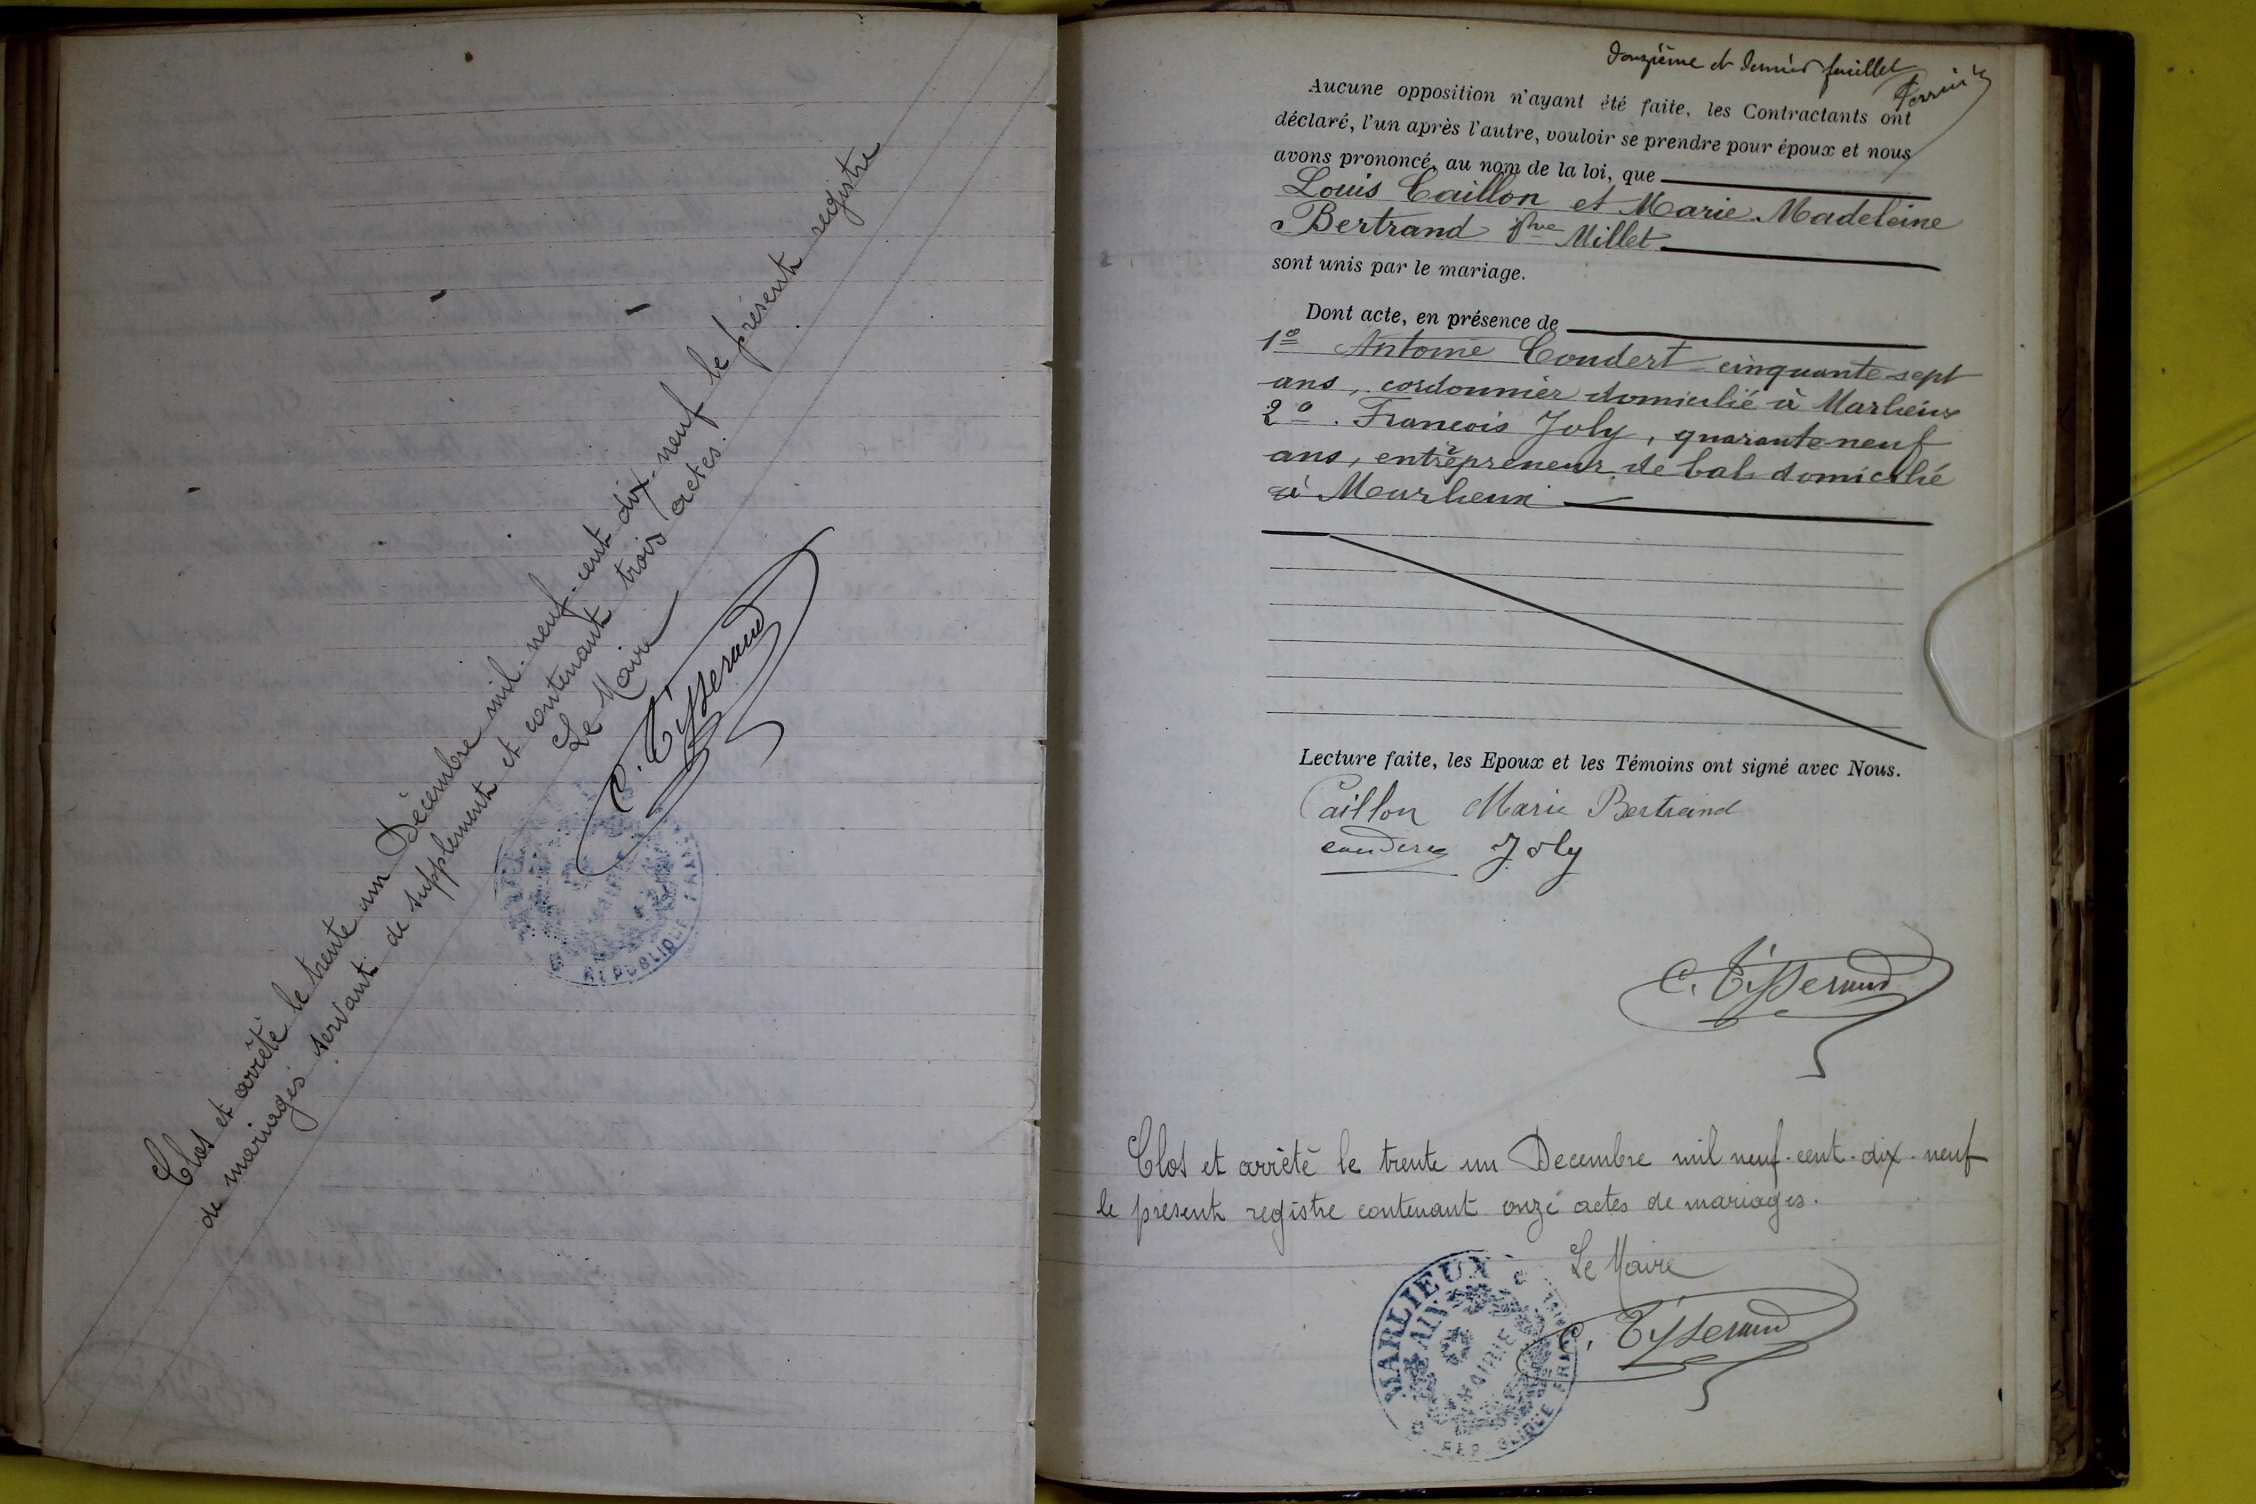 Clos et arrêté le trente un Décembre mil-neuf-cent dix-neuf le présent registre
de mariages servant de supplément et contenant trois actes.
Le Maire
C. Tisserand
MAIRIE
REPUBLIQUE FRAN
douzième et dernier feuillet
Aucune opposition n'ayant été faite, les Contractants ont
déclaré, l'un après l'autre, vouloir se prendre pour époux et nous
avons prononcé, au nom de la loi, que
Louis Caillon et Marie Madeleine
Bertrand Vve Millet
sont unis par le mariage.
Dont acte, en présence de
1o Antoine Coudert cinquante-sept
ans, cordonnier domicilié à Marlieux
2o. Francois Joly, quarante neuf
ans, entrepreneur de bals domicilié
à Marlieux
Lecture faite, les Epoux et les Témoins ont signé avec Nous.
Caillon Marie Bertrand
Joly
C. Tisserand
Clos et arrêté le trente un Decembre mil neuf-cent-dix-neuf
le présent registre contenant onze actes de mariages.
Le Maire
C. Tisserand
MARLIEUX
AIN
MAIRIE